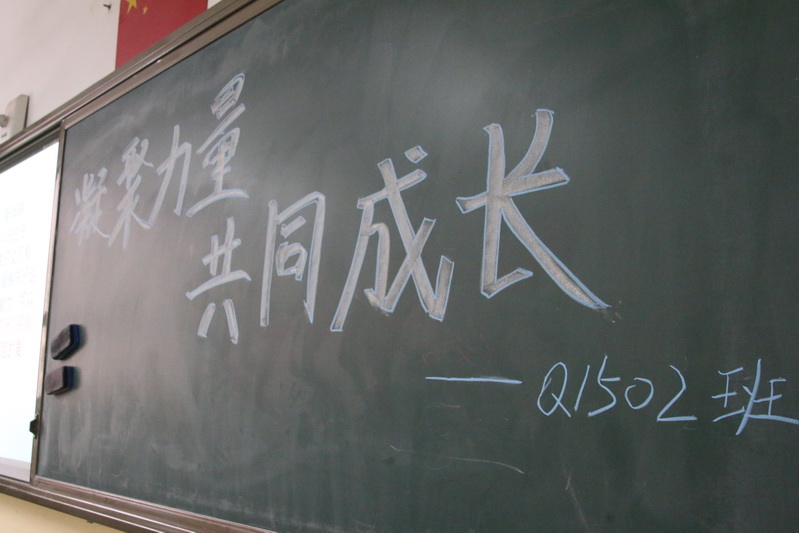 凝聚力量
共同成长
——Q1502班